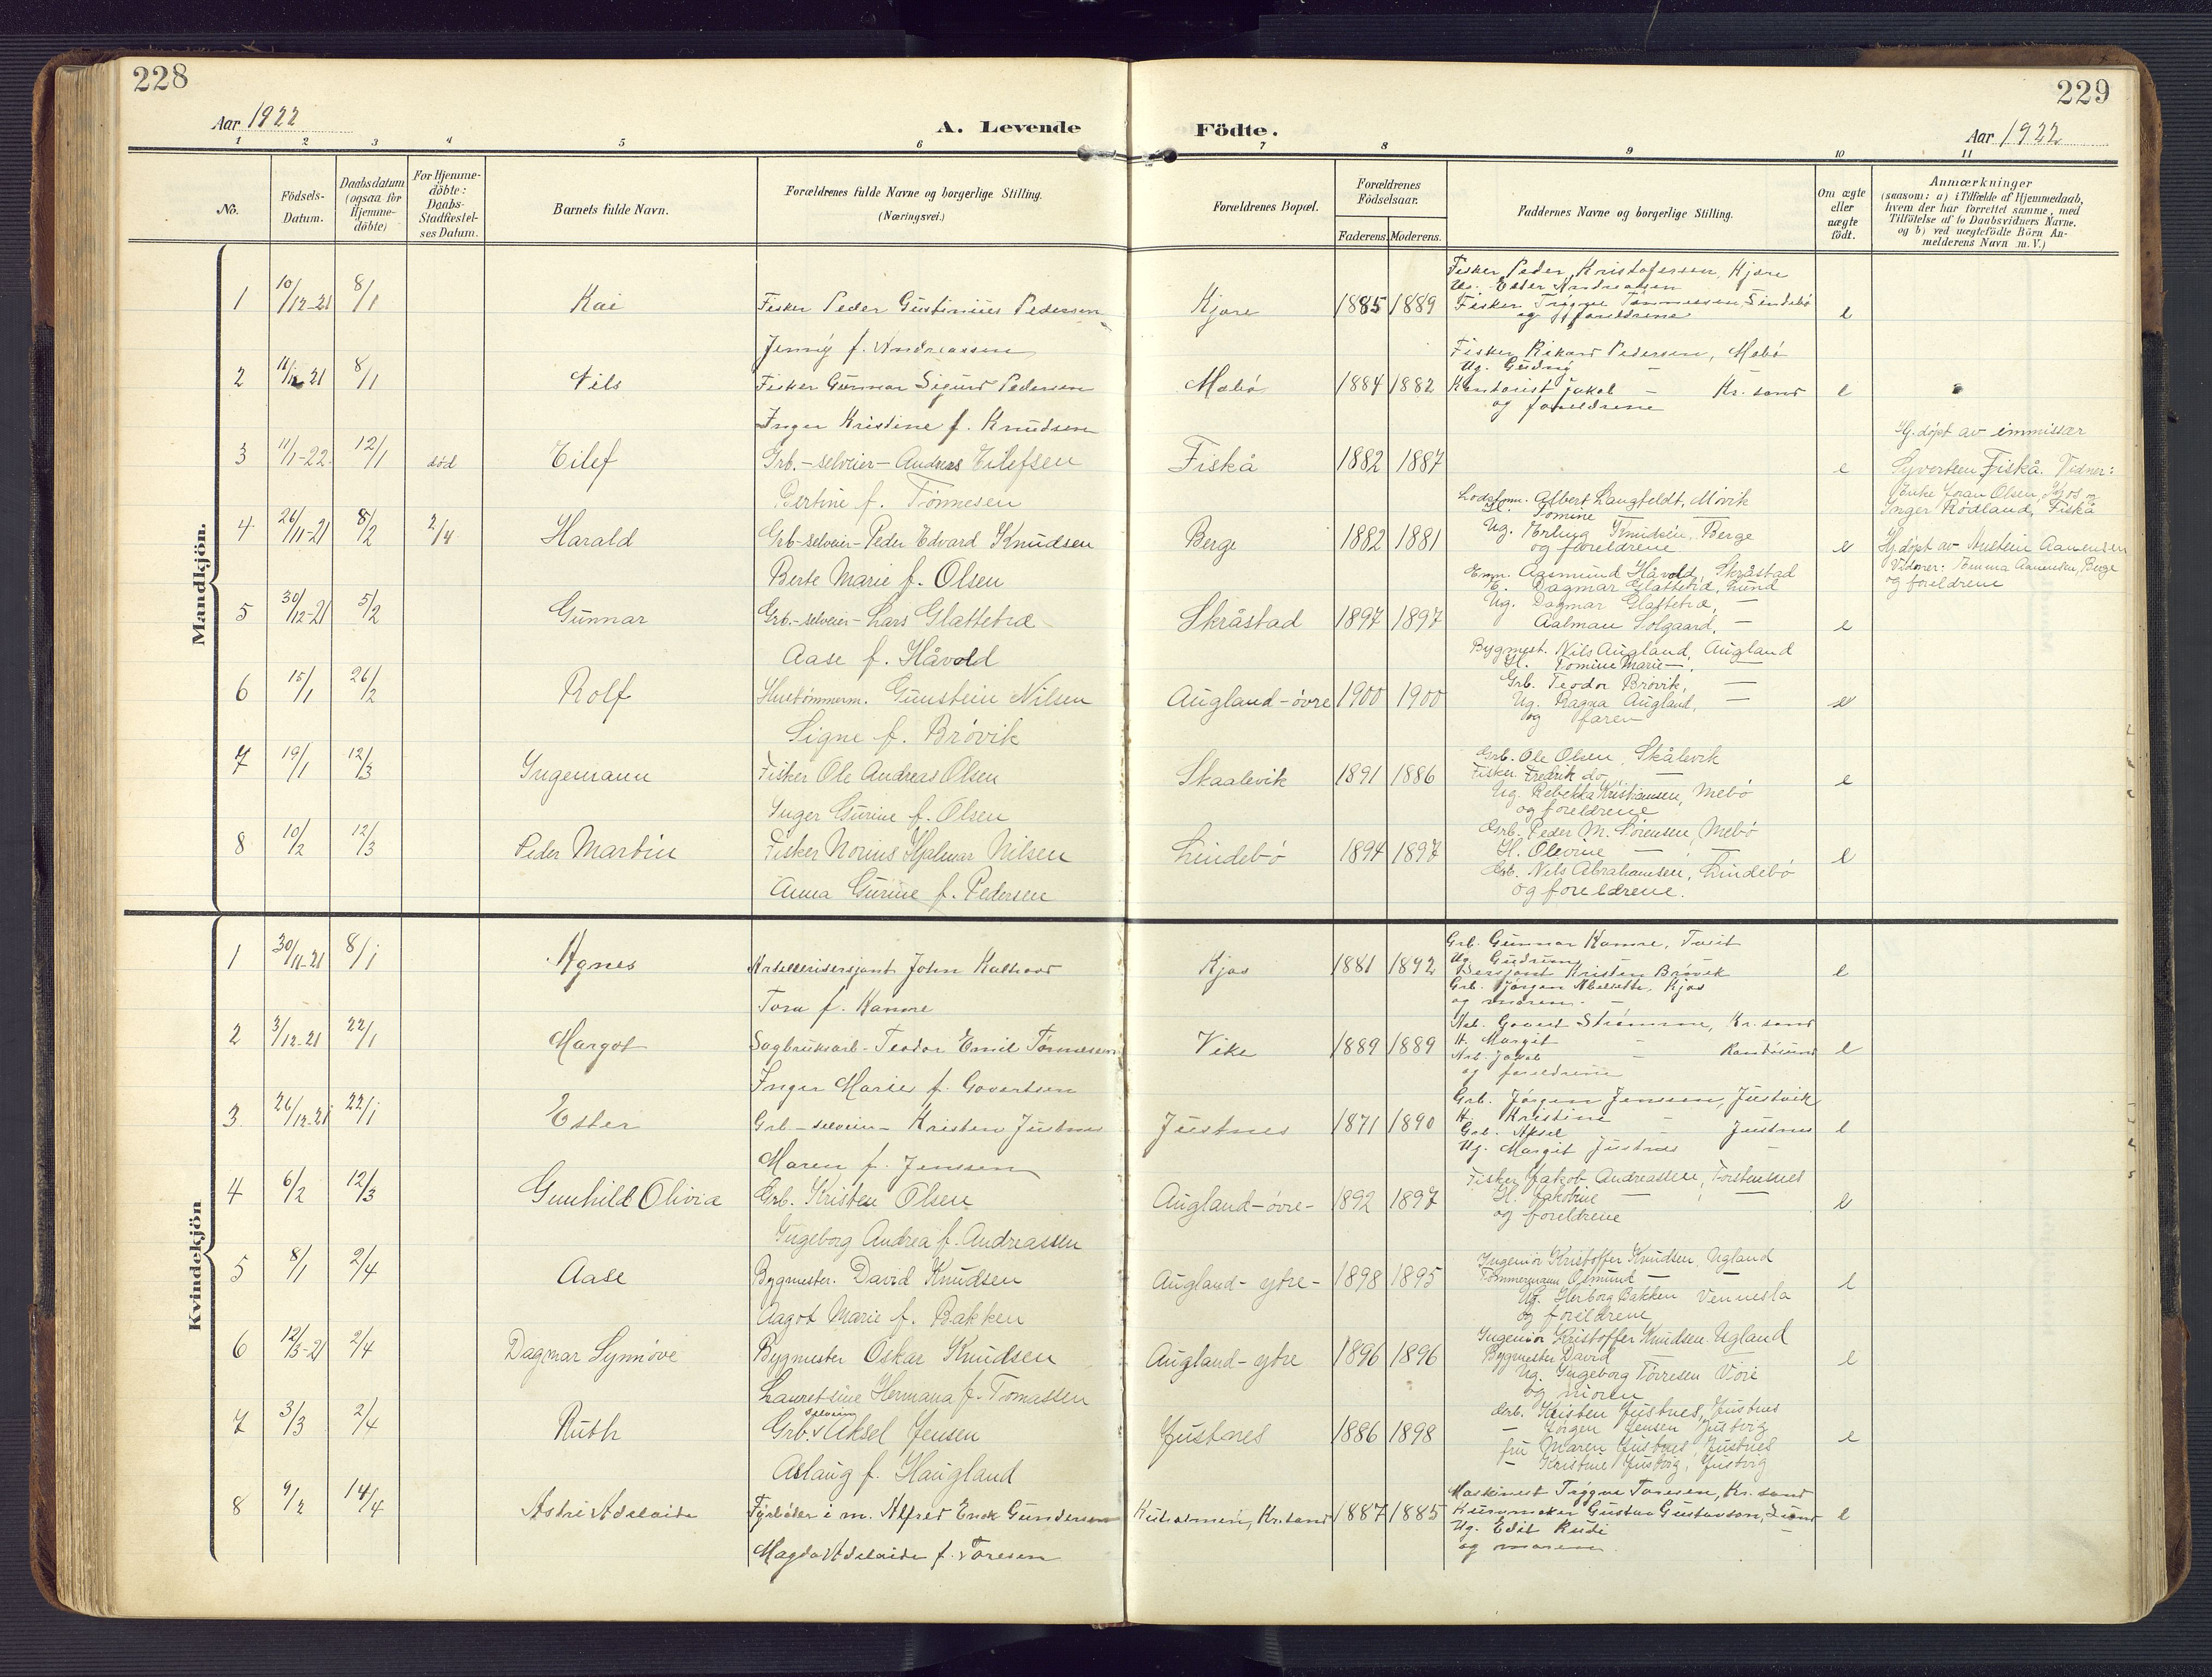 228
229
Aar 1922
A. Levende
Födte.
Aar 1922
1 2 3 4 5 6 7 8 9 10 11
No.
Födsels-
Datum.
Daabsdatum
(ogsaa for
Hjemme-
döbte)
For Hjemme-
döbte:
Daabs-
Stadfæstel-
ses Datum.
Barnets fulde Navn.
Forældrenes fulde Navne og borgerlige Stilling.
(Næringsvei.)
Forældrenes Bopæl.
Forældrenes
Födselsaar.
Faderens. Moderens.
Faddernes Navne og borgerlige Stilling.
Om ægte
eller
uægte
födt.
Anmærkninger
(saasom: a) i Tilfælde af Hjemmedaab,
hvem der har forrettet samme, med
Tilföielse af to Daabsvidners Navne.
og b) ved uægtefödte Börn An-
melderens Navn m. V.)
Mandkjön.
1 10/12-21 8/1 Kai Fisker Peder Gustinius Pedersen Kjære 1885 1889 e
Jenny f. Andreassen
Fisker Peder Kristofersen, Kjære
Ug. Ester Andreassen
Fisker Trygve Tønnessen Lindebø
og foreldrene
2 11/12-21 8/1 Nils Fisker Gunnar Sigurd Pedersen Mebø 1884 1882 e
Inger Kristine f. Knudsen
Fisker Rikard Pedersen, Mebø
Ug. Gudny —
Kontorist Jakob — Kr.sand
og foreldrene
3 11/1-22 12/1 død Eilef Grb.-selveier- Andreas Eilefsen Fiskå 1882 1887 e
Bertine f. Tønnesen
Hj.døpt av emissær
Syvertsen Fiskå. Vidner:
Enke Joran Olsen, Kjos og
Inger Rødland, Fiskå
4 26/11-21 8/2 2/4 Harald Grb-selveier- Peder Edvard Knudsen Berge 1882 1881 e
Berte Marie f. Olsen
Lodsfmn. Albert Langfeldt, Møvik
H. Tomine —
Ug. Erling Knudsen, Berge
og foreldrene
Hj.døpt av Austein Aanensen
Vidner: Emma Aanensen, Berge
og foreldrene
5 30/12-21 5/2 Gunnar Grb.-selveier- Lars Glattetræ Skråstad 1897 1897 e
Aase f. Håvold
Em. Aasmund Håvold, Skråstad
E. Dagmar Glattetræ, Lund
Ug. Dagmar Glattetræ, —
Aalmau Solgaard, —
6 15/1 26/2 Rolf Hustømmerm. Gunstein Nilsen Augland-øvre 1900 1900 e
Signe f. Brøvik
Bygmest. Nils Augland, Augland
H. Tomine Marie —, —
Grb. Teodor Brøvik, —
Ug. Ragna Augland, —
og faren
7 19/1 12/3 Ingemann Fisker Ole Andreas Olsen Skaalevik 1891 1886 e
Inger Gurine f. Olsen
Grb. Ole Olsen, Skålevik
Fisker Fredrik do. —
Ug. Rebekka Kristiansen, Mebø
og foreldrene
8 10/2 12/3 Peder Martin Fisker Norius Hjalmar Nilsen Lindebø 1894 1897 e
Anna Gurine f. Pedersen
Grb. Peder M. Sørensen, Mebø
H. Olevine — —
Grb. Nils Abrahamsen, Lindebø
og foreldrene.
Kvindekjön
1 30/11-21 8/1 Agnes Artellerisersjant John Kalhovd Kjos 1881 1892 e
Tora f. Kamre
Grb. Gunnar Kamre, Tveit
Ug. Gudrun —
Sersjant Kristen Brøvik
Grb. Jørgen Abelsette, Kjos
og moren. —
2 3/12-21 22/1 Margot Sagbruksarb- Teodor Emil Tønnesen Vike 1889 1889 e
Inger Marie f. Govertsen
Arb. Govert Strømme, Kr.sand
H. Margit —
Arb. Jakob — Randøsund
og foreldrene
3 26/12-21 22/1 Ester Grb-selveier- Kristen Justnes Justnes 1871 1890 e
Maren f. Jenssen
Grb. Jørgen Jenssen, Justvik
H. Kristine —
Grb. Aksel — Justnes
Ug. Margit Justnes —
4 6/2 12/3 Gunhild Olivia Grb. Kristen Olsen Augland-øvre- 1892 1897 e
Ingeborg Andrea f. Andreassen
Fisker Jakob Andreassen, Torstensnes
H. Jakobine — —
og foreldrene
5 8/1 2/4 Aase Bygmester. David Knudsen Augland-ytre- 1898 1895 e
Aagot Marie f. Bakken
Ingeniør Kristoffer Knudsen, Ugland
Tømmermann Osmund — —
Ug. Herborg Bakken Vennesla
og foreldrene
6 12/3-21 2/4 Dagmar Synnøve Bygmester Oskar Knudsen Augland-ytre 1896 1896 e
Lauretsine Hermana f. Tomassen
Ingeniør Kristoffer Knudsen, Ugland
Bygmester David — —
Ug. Ingeborg Torresen Voie
og moren
7 3/3 2/4 Ruth Grb. selveier Aksel Jensen Justnes 1886 1898 e
Aslaug f. Haugland
Grb. Kristen Justnes, Justnes
— Jørgen Jensen Justvig
fru Maren Justnes, Justnes
— Kristine Justvig, Justvig
8 9/2 14/4 Astri Adelaide Fyrbøder i m. Alfred Enok Gundersen Kuholmen, Kr.sand 1887 1885 e
Magda Adelaide f. Toresen
Maskinist Trygve Toresen, Kr.sand
Kurvmaker Gustav Gustavson, Lund
Ug. Edit Rudi —
og moren